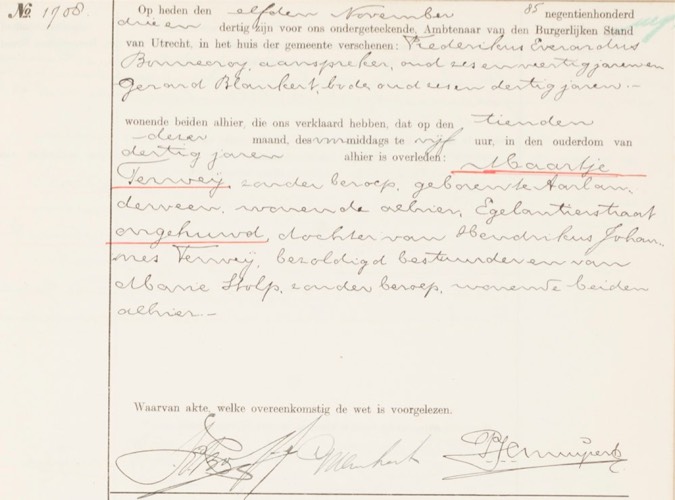 No. 1908.
Op heden den elfden November 85 negentienhonderd
drieen dertig zijn voor ons ondergeteekende, Ambtenaar van den Burgerlijken Stand
van Utrecht, in het huis der gemeente verschenen: Frederikus Everardus
Bonnecroy, aanspreker, oud zes en veertig jaren en
Gerard Blankert, bode oud zes en dertig jaren.—
wonende beiden alhier, die ons verklaard hebben, dat op den tienden
dezer maand, des middags te vijf uur, in den ouderdom van
dertig jaren alhier is overleden: Maartje
Terweij, zonder beroep, geboren te Aarlan-
derveen, wonende alhier, Egelantierstraat
ongehuwd, dochter van Hendrikus Johan-
nes Terweij, bezoldigd bestuurder en van
Marie Stolp, zonder beroep, wonende beiden
alhier.—
Waarvan akte, welke overeenkomstig de wet is voorgelezen.